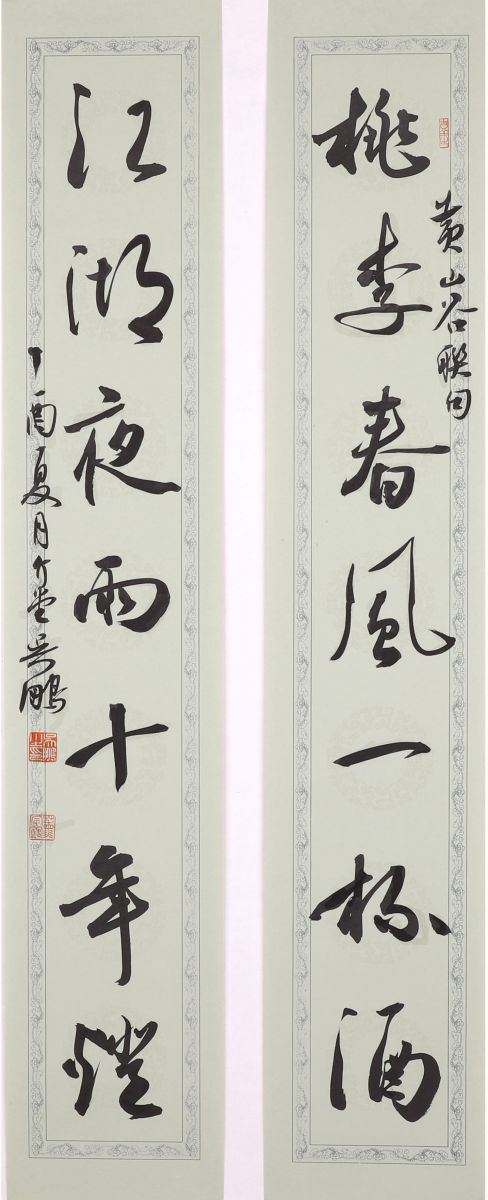 黄山谷联句
桃李春風一杯酒
江湖夜雨十年燈
丁酉夏月介堂吴鵬